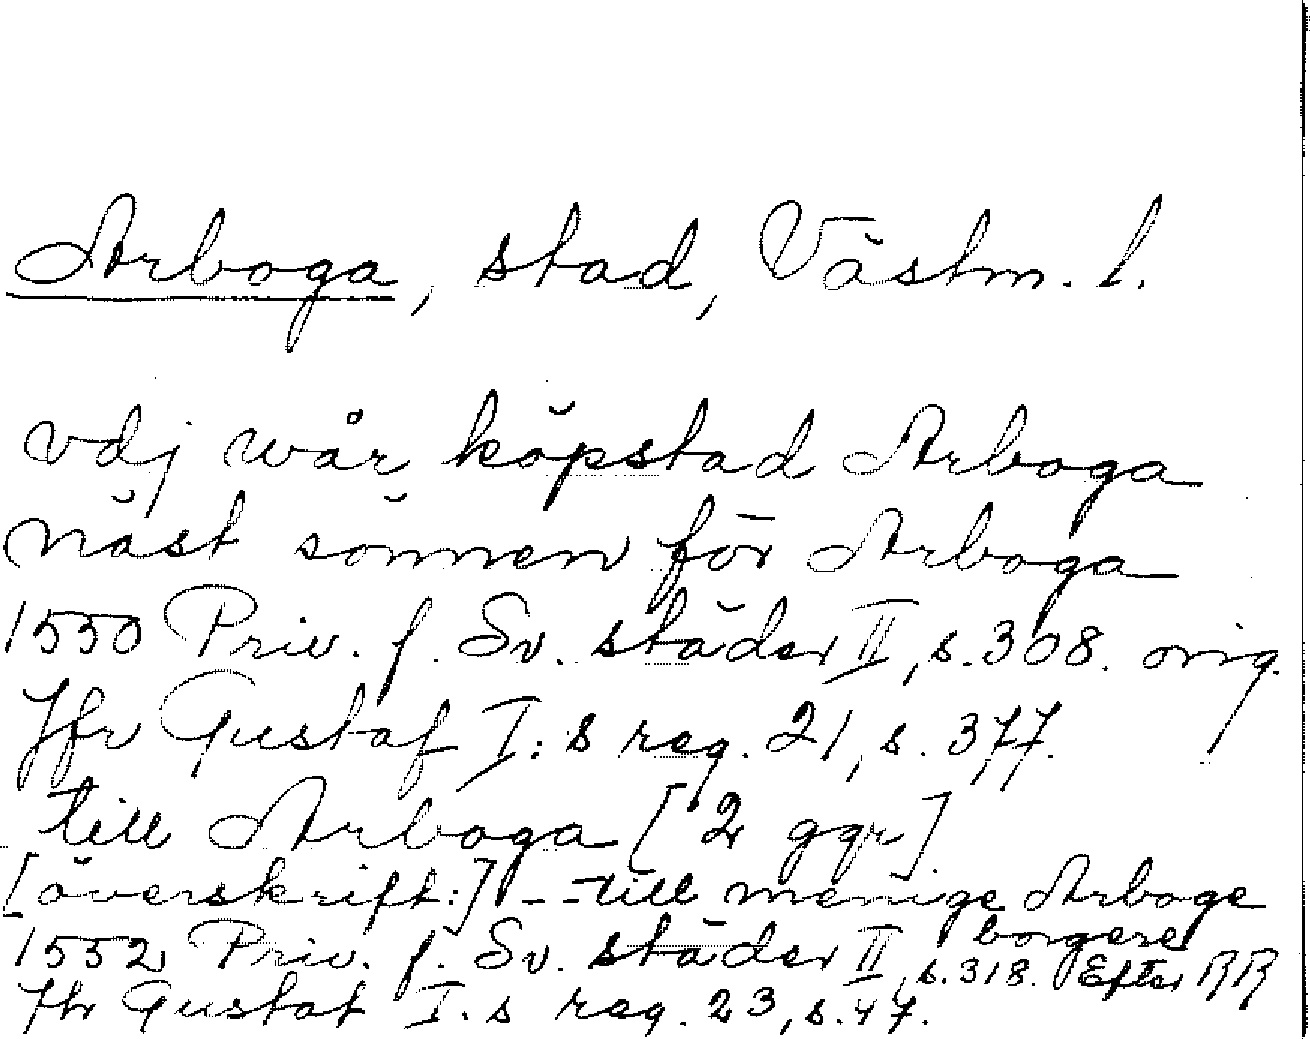 Arboga, stad, Västm. l.
vdj wår köpstad Arboga
näst sönnen för Arboga
1550 Priv. f. Sv. städer II, s. 308. orig.
Jfr Gustaf I:s reg. 21, s. 377.
till Arboga [2 ggr]
[överskrift:] - - till menige Arboge
borgere
1552 Priv. f. Sv. städer II, s. 318. Efter RR
Jfr Gustaf I.s reg. 23, s. 47.